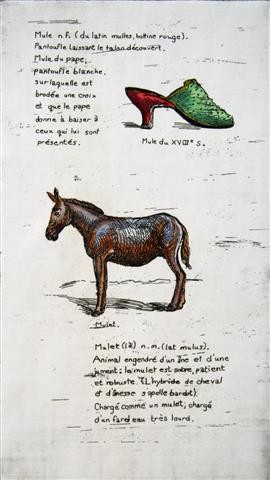 Mule n.f. (du latin mulles, bottine rouge).
Pantoufle laissant le talon découvert.
Mule du pape,
pantoufle blanche,
sur laquelle est
brodée une croix
et que le pape
donne à baiser à
ceux qui lui sont
présentés.
Mule du XVIIIe S.
Mulet.
Mulet (lè) n.m. (lat mulus).
Animal engendré d'un âne et d'une
jument : le mulet est sobre, patient
et robuste. (L'hybride de cheval
et d'ânesse s'apelle bardot).
Chargé comme un mulet, chargé
d'un fardeau très lourd.